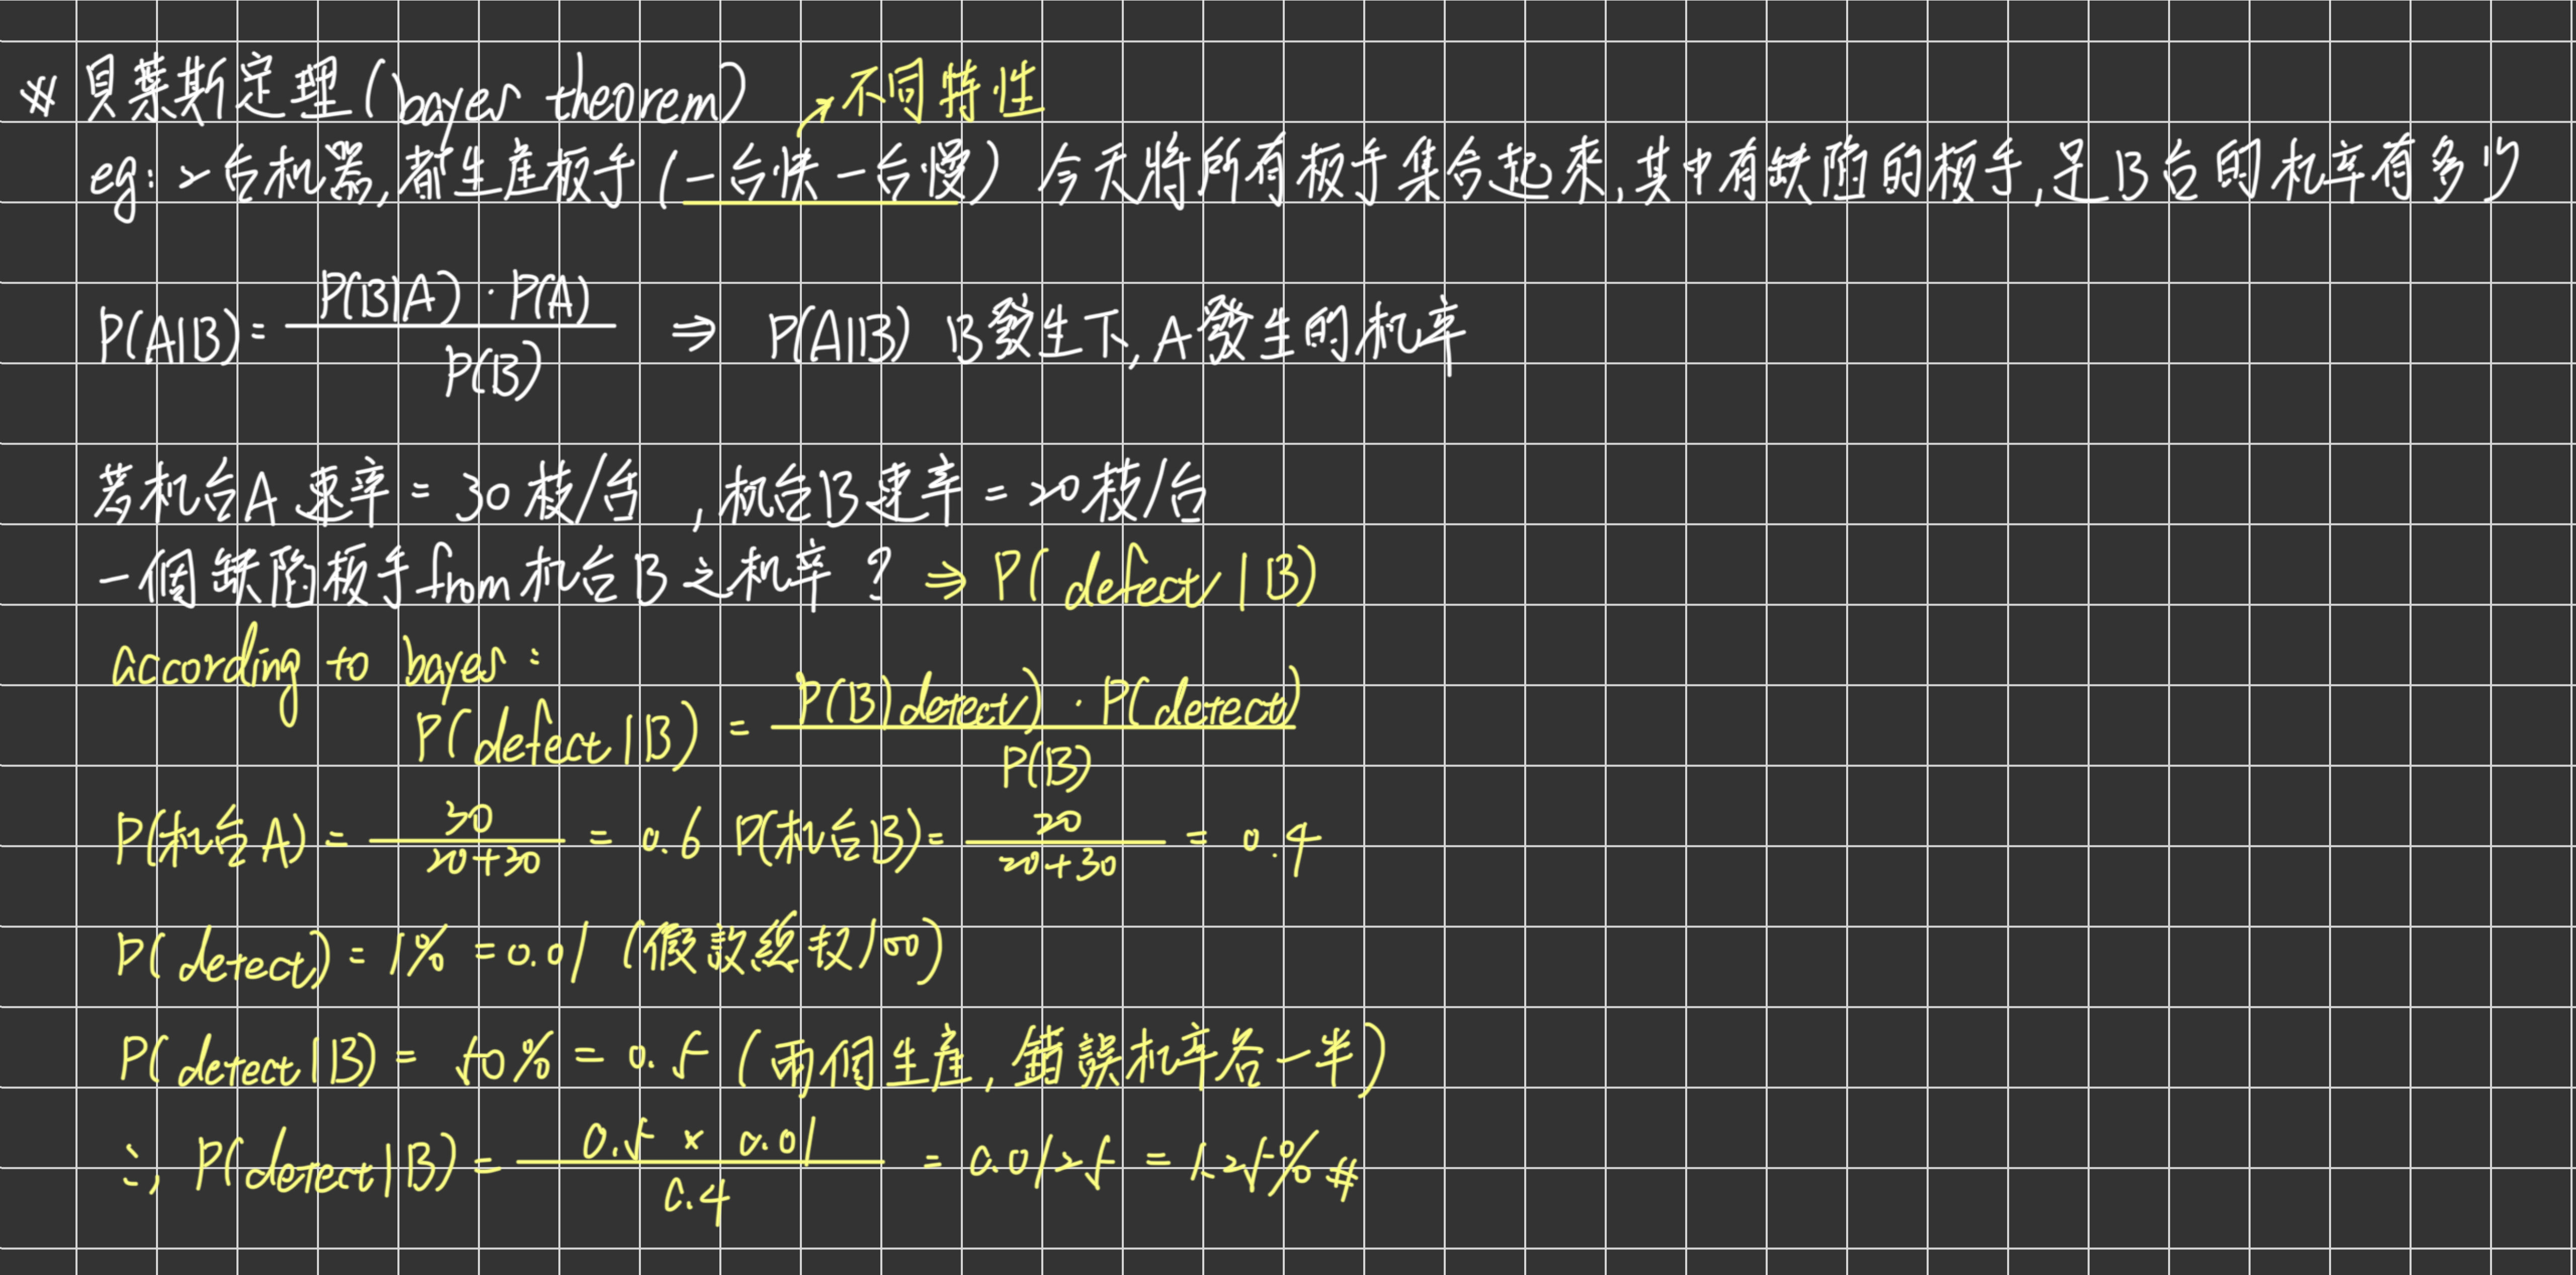 ※ 貝葉斯定理(bayes theorem) ↗不同特性
eg: 2台机器,都生産板手(一台快一台慢) 今天將所有板手集合起來,其中有缺陷的板手,是B台的机率有多少
P(A|B) = P(B|A)·P(A) / P(B) ⇒ P(A|B) B發生下,A發生的机率
若机台A速率 = 30枝/台 ,机台B速率 = 20枝/台
一個缺陷板手from机台B之机率? ⇒ P(defect|B)
according to bayes:
P(defect|B) = P(B|defect)·P(defect) / P(B)
P(机台A) = 30 / 20+30 = 0.6 P(机台B) = 20 / 20+30 = 0.4
P(defect) = 1% = 0.01 (假設總数100)
P(defect|B) = 50% = 0.5 (兩個生産,錯誤机率各一半)
∴, P(defect|B) = 0.5 × 0.01 / 0.4 = 0.0125 = 1.25% #